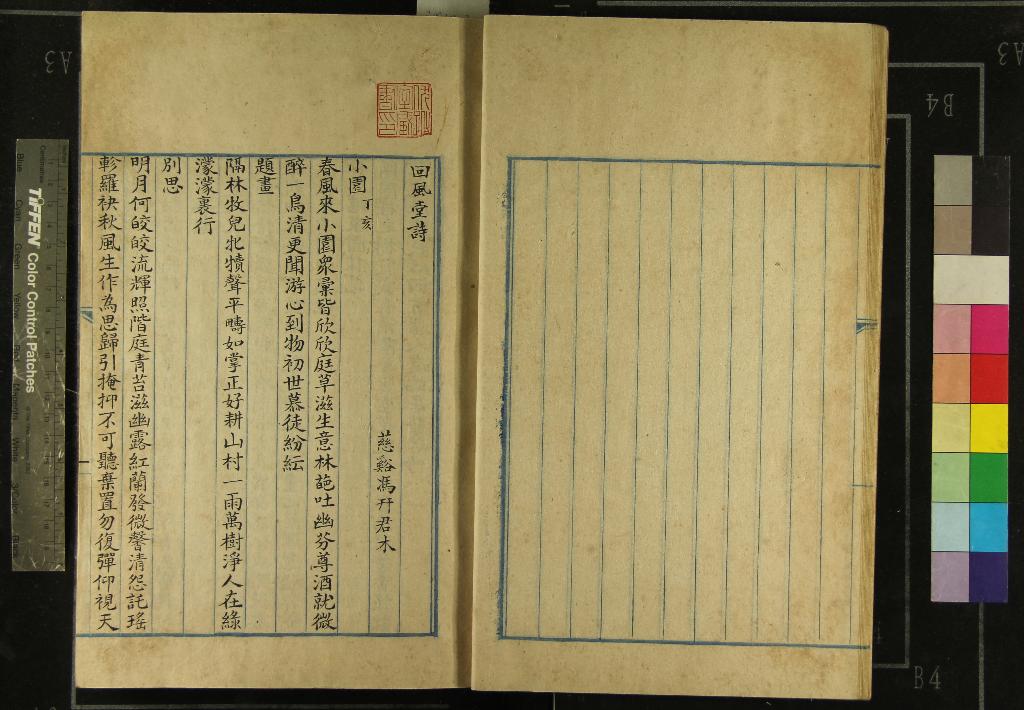 回風堂詩
慈谿馮幵君木
小園丁亥
春風來小園眾彙皆欣欣庭草滋生意林葩吐幽芬尊酒就微
醉一鳥清更聞游心到物初世慕徒紛紜
題畫
隔林牧兒牝犢聲平疇如掌正好耕山村一雨萬樹淨人在綠
濛濛裏行
別思
明月何皎皎流輝照階庭青苔滋幽露紅蘭發微馨清怨託瑤
軫羅袂秋風生作為思歸引掩抑不可聽棄置勿復彈仰視天
TIFFEN Color Control Patches
A3
B4
A3
B4